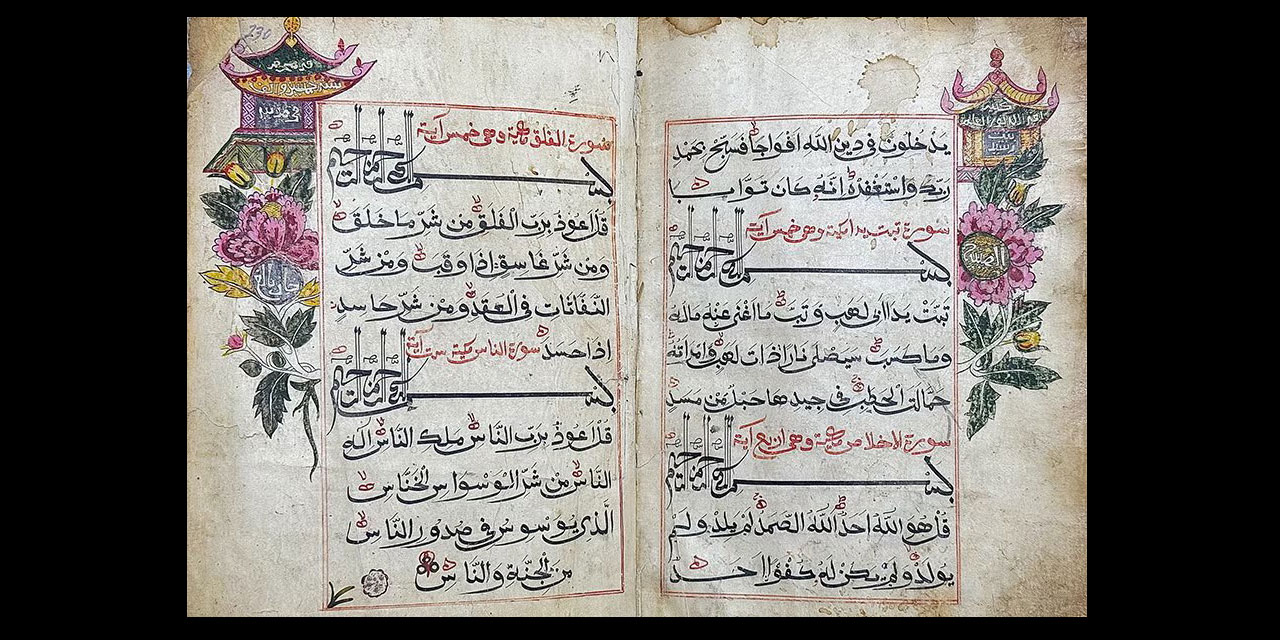 يَدْخُلُونَ فِي دِينِ اللَّهِ أَفْوَاجًا فَسَبِّحْ بِحَمْدِ
رَبِّكَ وَاسْتَغْفِرْهُ إِنَّهُ كَانَ تَوَّابًا
سورة تبت يدا مكية وهي خمس آية
بسم الله الرحمن الرحيم
تَبَّتْ يَدَا أَبِي لَهَبٍ وَتَبَّ مَا أَغْنَى عَنْهُ مَالُهُ
وَمَا كَسَبَ سَيَصْلَى نَارًا ذَاتَ لَهَبٍ وَامْرَأَتُهُ
حَمَّالَةَ الْحَطَبِ فِي جِيدِهَا حَبْلٌ مِنْ مَسَدٍ
سورة الاخلاص مكية وهي اربع آية
بسم الله الرحمن الرحيم
قُلْ هُوَ اللَّهُ أَحَدٌ اللَّهُ الصَّمَدُ لَمْ يَلِدْ وَلَمْ
يُولَدْ وَلَمْ يَكُنْ لَهُ كُفُوًا أَحَدٌ
230
سورة الفلق مكية وهي خمس آية
بسم الله الرحمن الرحيم
قُلْ أَعُوذُ بِرَبِّ الْفَلَقِ مِنْ شَرِّ مَا خَلَقَ
وَمِنْ شَرِّ غَاسِقٍ إِذَا وَقَبَ وَمِنْ شَرِّ
النَّفَّاثَاتِ فِي الْعُقَدِ وَمِنْ شَرِّ حَاسِدٍ
إِذَا حَسَدَ سورة الناس مكية ست آية
بسم الله الرحمن الرحيم
قُلْ أَعُوذُ بِرَبِّ النَّاسِ مَلِكِ النَّاسِ إِلَهِ
النَّاسِ مِنْ شَرِّ الْوَسْوَاسِ الْخَنَّاسِ
الَّذِي يُوَسْوِسُ فِي صُدُورِ النَّاسِ
مِنَ الْجِنَّةِ وَالنَّاسِ